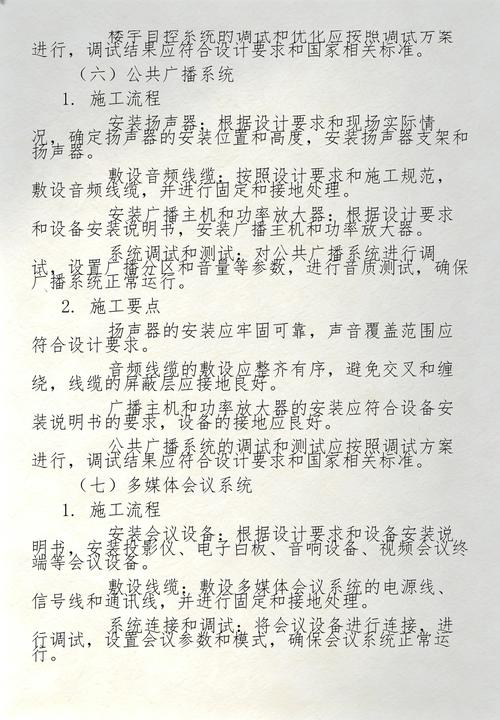 楼宇自控系统的调试和优化应按照调试方案
进行，调试结果应符合设计要求和国家相关标准。
（六）公共广播系统
1. 施工流程
安装扬声器：根据设计要求和现场实际情
况，确定扬声器的安装位置和高度，安装扬声器支架和
扬声器。
敷设音频线缆：按照设计要求和施工规范，
敷设音频线缆，并进行固定和接地处理。
安装广播主机和功率放大器：根据设计要求
和设备安装说明书，安装广播主机和功率放大器。
系统调试和测试：对公共广播系统进行调
试，设置广播分区和音量等参数，进行音质测试，确保
广播系统正常运行。
2. 施工要点
扬声器的安装应牢固可靠，声音覆盖范围应
符合设计要求。
音频线缆的敷设应整齐有序，避免交叉和缠
绕，线缆的屏蔽层应接地良好。
广播主机和功率放大器的安装应符合设备安
装说明书的要求，设备的接地应良好。
公共广播系统的调试和测试应按照调试方案
进行，调试结果应符合设计要求和国家相关标准。
（七）多媒体会议系统
1. 施工流程
安装会议设备：根据设计要求和设备安装说
明书，安装投影仪、电子白板、音响设备、视频会议终
端等会议设备。
敷设线缆：敷设多媒体会议系统的电源线、
信号线和通讯线，并进行固定和接地处理。
系统连接和调试：将会议设备进行连接，进
行调试，设置会议参数和模式，确保会议系统正常运
行。